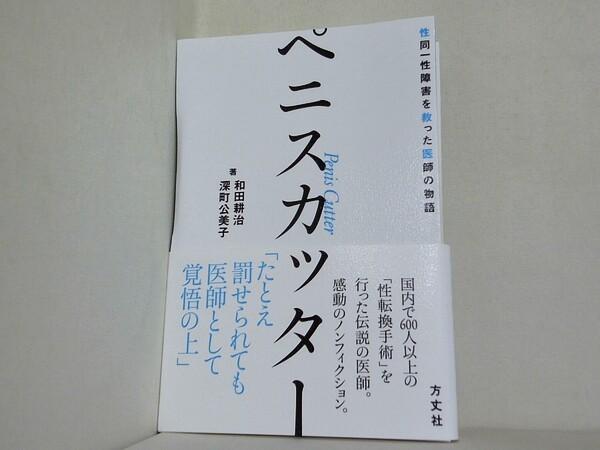 性同一性障害を救った医師の物語
ペニスカッター
Penis Cutter
著 和田耕治
深町公美子
国内で600人以上の
「性転換手術」を
行った伝説の医師。
感動のノンフィクション。
「たとえ
罰せられても
医師として
覚悟の上」
方丈社